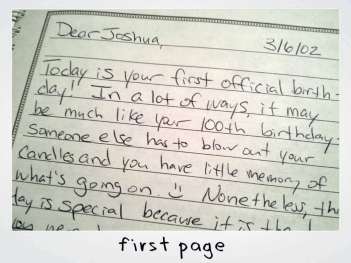 Dear Joshua,
3/6/02
Today is your first official birth-
day! In a lot of ways, it may
be much like your 100th birthday.
Someone else has to blow out your
candles and you have little memory of
what's going on Nonetheless,
day is special because it is the
first page